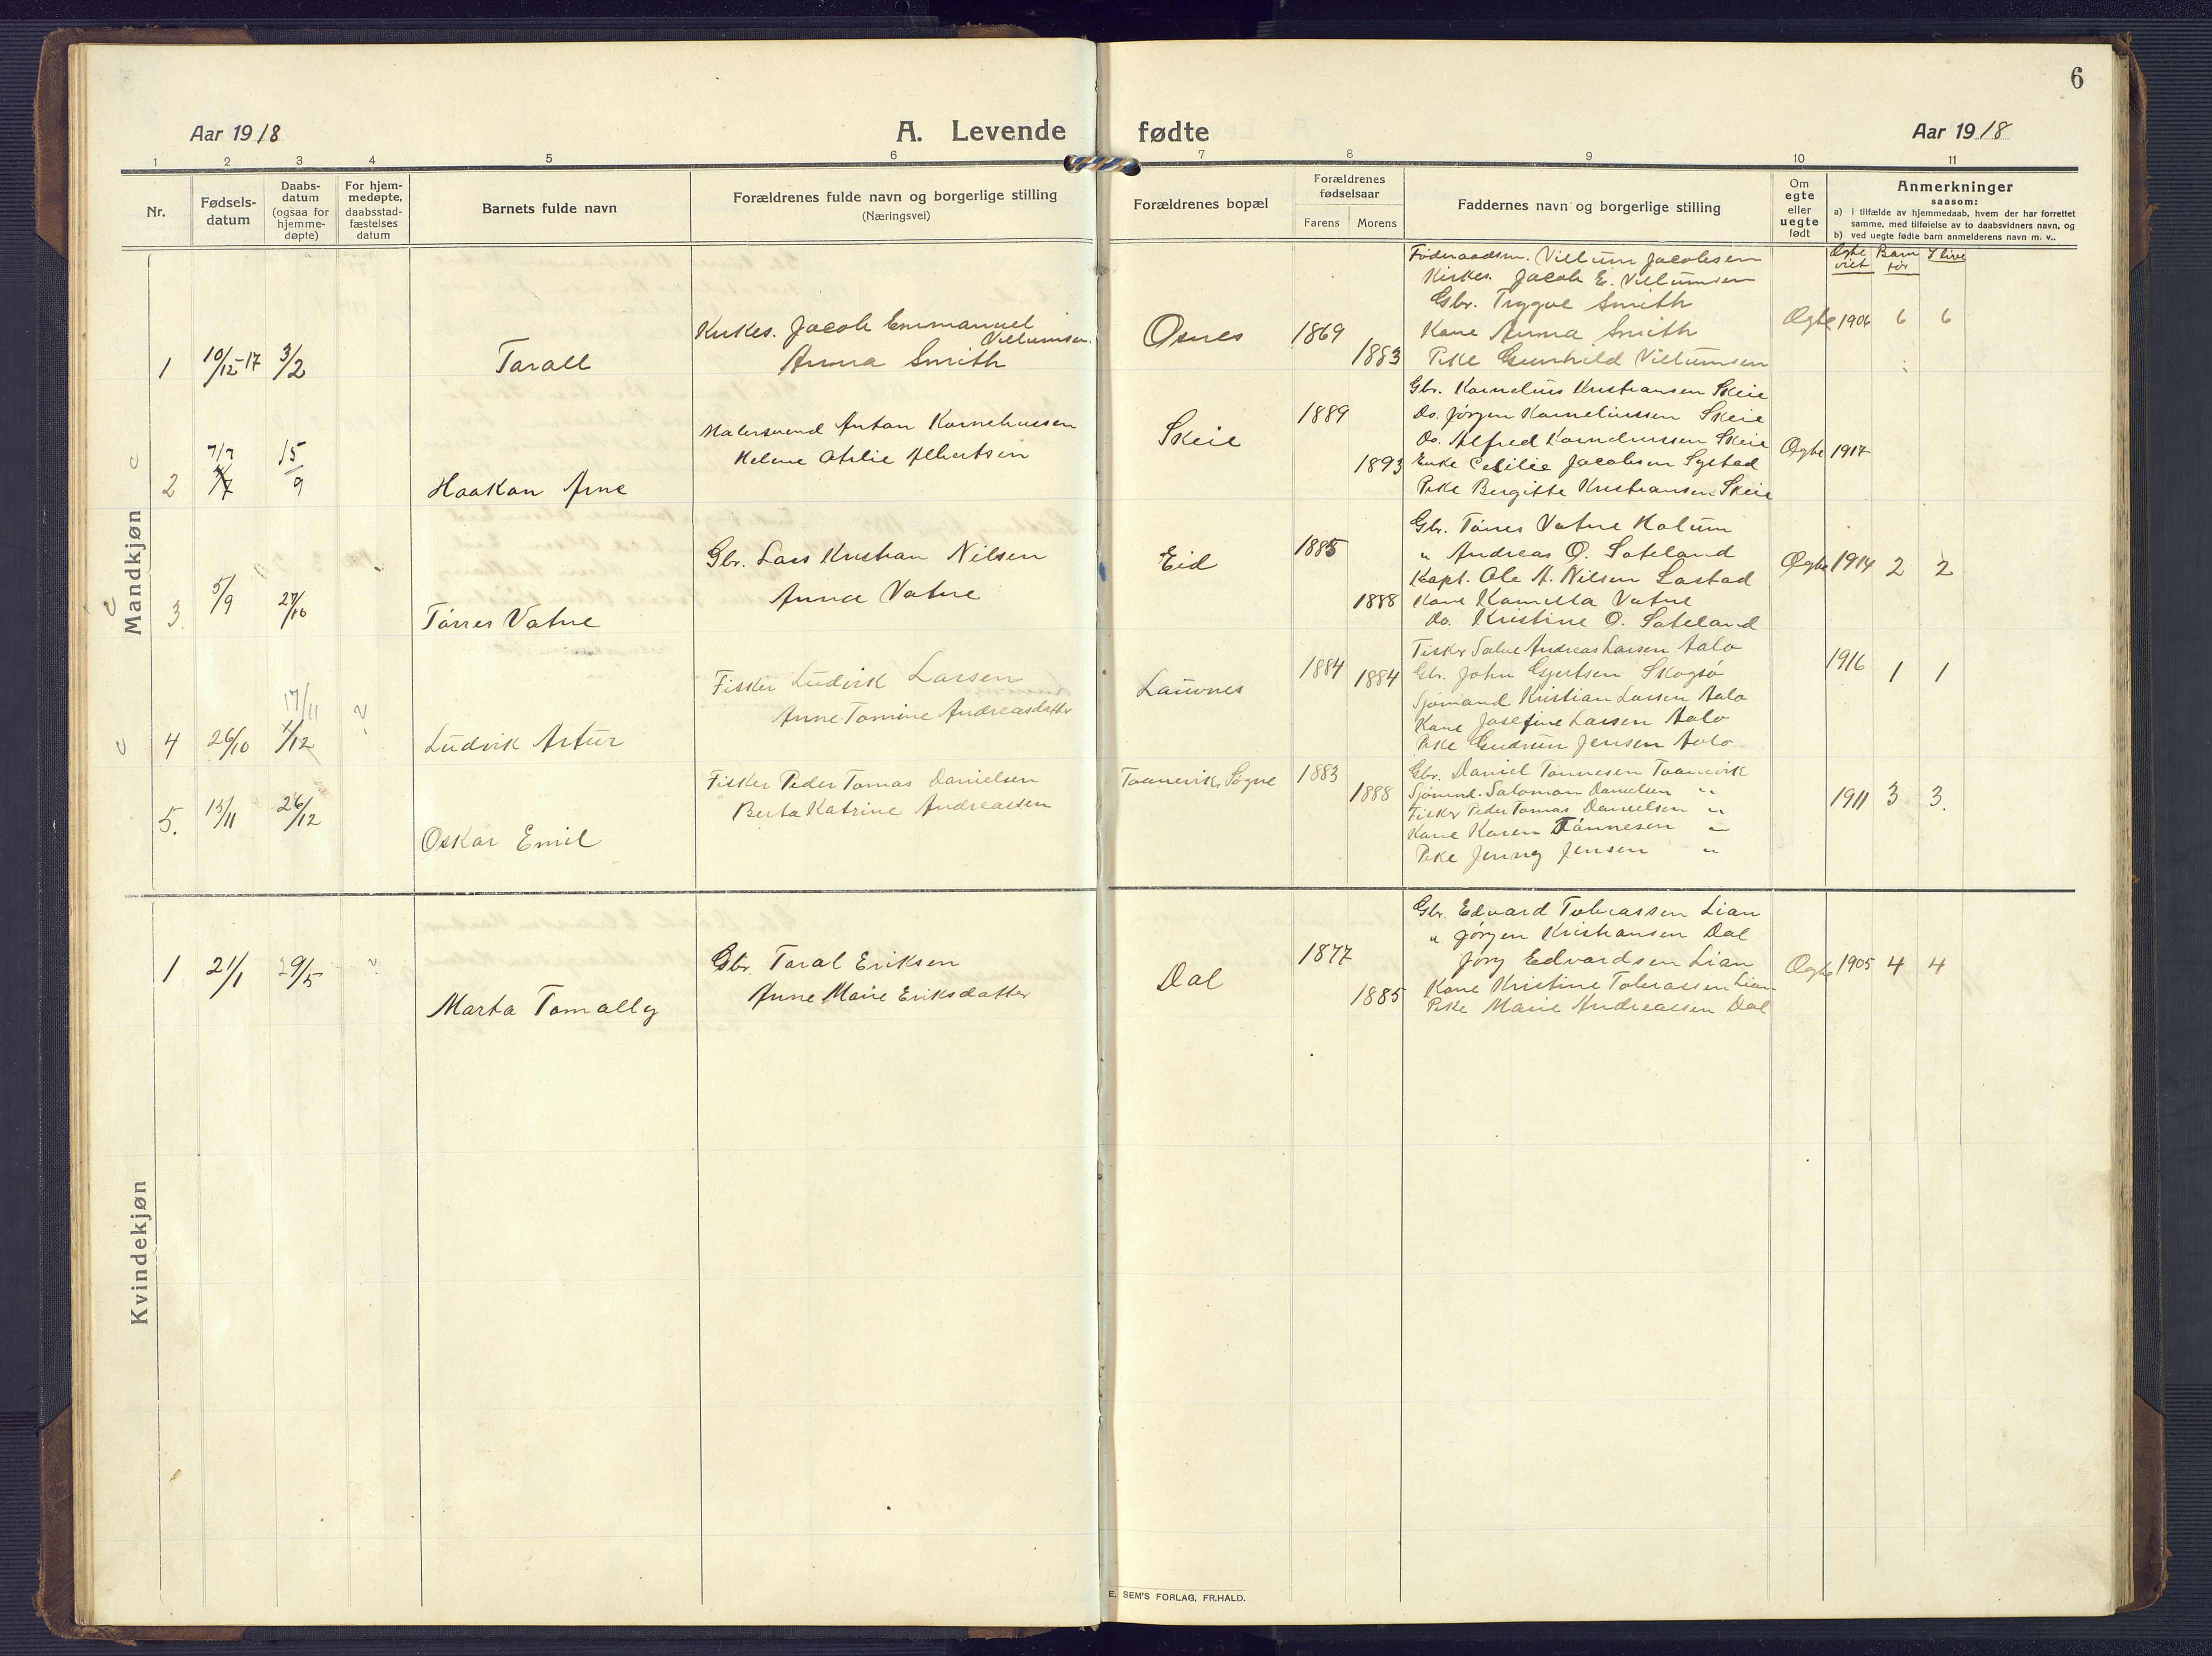 6
Aar 1918
A. Levende fødte
Aar 1918
1 2 3 4 5 6 7 8 9 10 11
Nr.
Fødsels-
datum
Daabs-
datum
(ogsaa for
hjemme-
døpte)
For hjem-
medøpte,
daabsstad-
fæstelses
datum
Barnets fulde navn
Forældrenes fulde navn og borgerlige stilling
(Næringsvei)
Forældrenes bopæl
Forældrenes
fødselsaar
Farens Morens
Faddernes navn og borgerlige stilling
Om
egte
eller
uegte
født
Anmerkninger
saasom:
a) i tilfælde av hjemmedaab, hvem der har forrettet
samme, med tilføielse av to daabsvidners navn, og
b) ved uegte fødte barn anmelderens navn m. v..
Ægte Barn I live
viet før
Mandkjøn
1 10/12-17 3/2
Tarall
Kirkes. Jacob Emmanuel
Villumsen.
Anna Smith
Osnes
1869
1883
Føderaadsm. Villum Jacobsen
Kirkes. Jacob E. Villumsen
Gbr. Trygve Smith
Kone Anna Smith
Pike Gunhild Villumsen
Ægte 1906 6 6
2 7/7 15/9
Haakon Arne
Malersvend Anton Korneliussen
Helene Otelie Albertsen
Skeie
1889
1893
Gbr. Kornelius Kristiansen Skeie
Do. Jørgen Korneliussen Skeie
Do. Alfred Korneliussen Skeie
Enke Cesilie Jacobsen Systad
Pike Bergitte Kristiansen Skeie
Ægte 1917
3 5/9 27/10
Tørres Vatne
Gbr. Lars Kristian Nilsen
Anna Vatne
Eid
1885
1888
Gbr. Tørres Vatne Holum
" Andreas O. Soteland
Kapt. Ole A. Nilsen Lastad
Kone Kamilla Vatne
Do. Kristine O. Soteland
Ægte 1914 2 2
17/11
4 26/10 1/12
Ludvik Artur
Fisker Ludvik Larsen
Anne Tomine Andreasdatter
Lauvnes
1884
1884
Fisker Salve Andreas Larsen Aalo
Gbr. John Gjertsen Skogsø
Sjømand Kristian Larsen Aalo
Kone Josefine Larsen Aalo
Pike Gudrun Jensen Aalo
1916 1 1
5. 15/11 26/12
Oskar Emil
Fisker Peder Tomas Danielsen
Berta Katrine Andreassen
Taanevik Søgne
1883
1888
Gbr. Daniel Tønnesen Taanevik
Sjømnd. Salomon Danielsen "
Fisker Peder Tomas Danielsen "
Kone Karen Tønnesen "
Pike Jenny Jensen "
1911 3 3.
Kvindekjøn
1 21/1 29/5
Marta Tomally
Gbr. Taral Eriksen
Anne Marie Eriksdatter
Dal
1877
1885
Gbr. Edvard Tobiassen Lian
" Jørgen Kristiansen Dal
Jørg Edvardsen Lian
Kone Kristine Tobiassen Lian
Pike Marie Andreassen Dal
Ægte 1905 4 4
E. SEM'S FORLAG, FR.HALD.